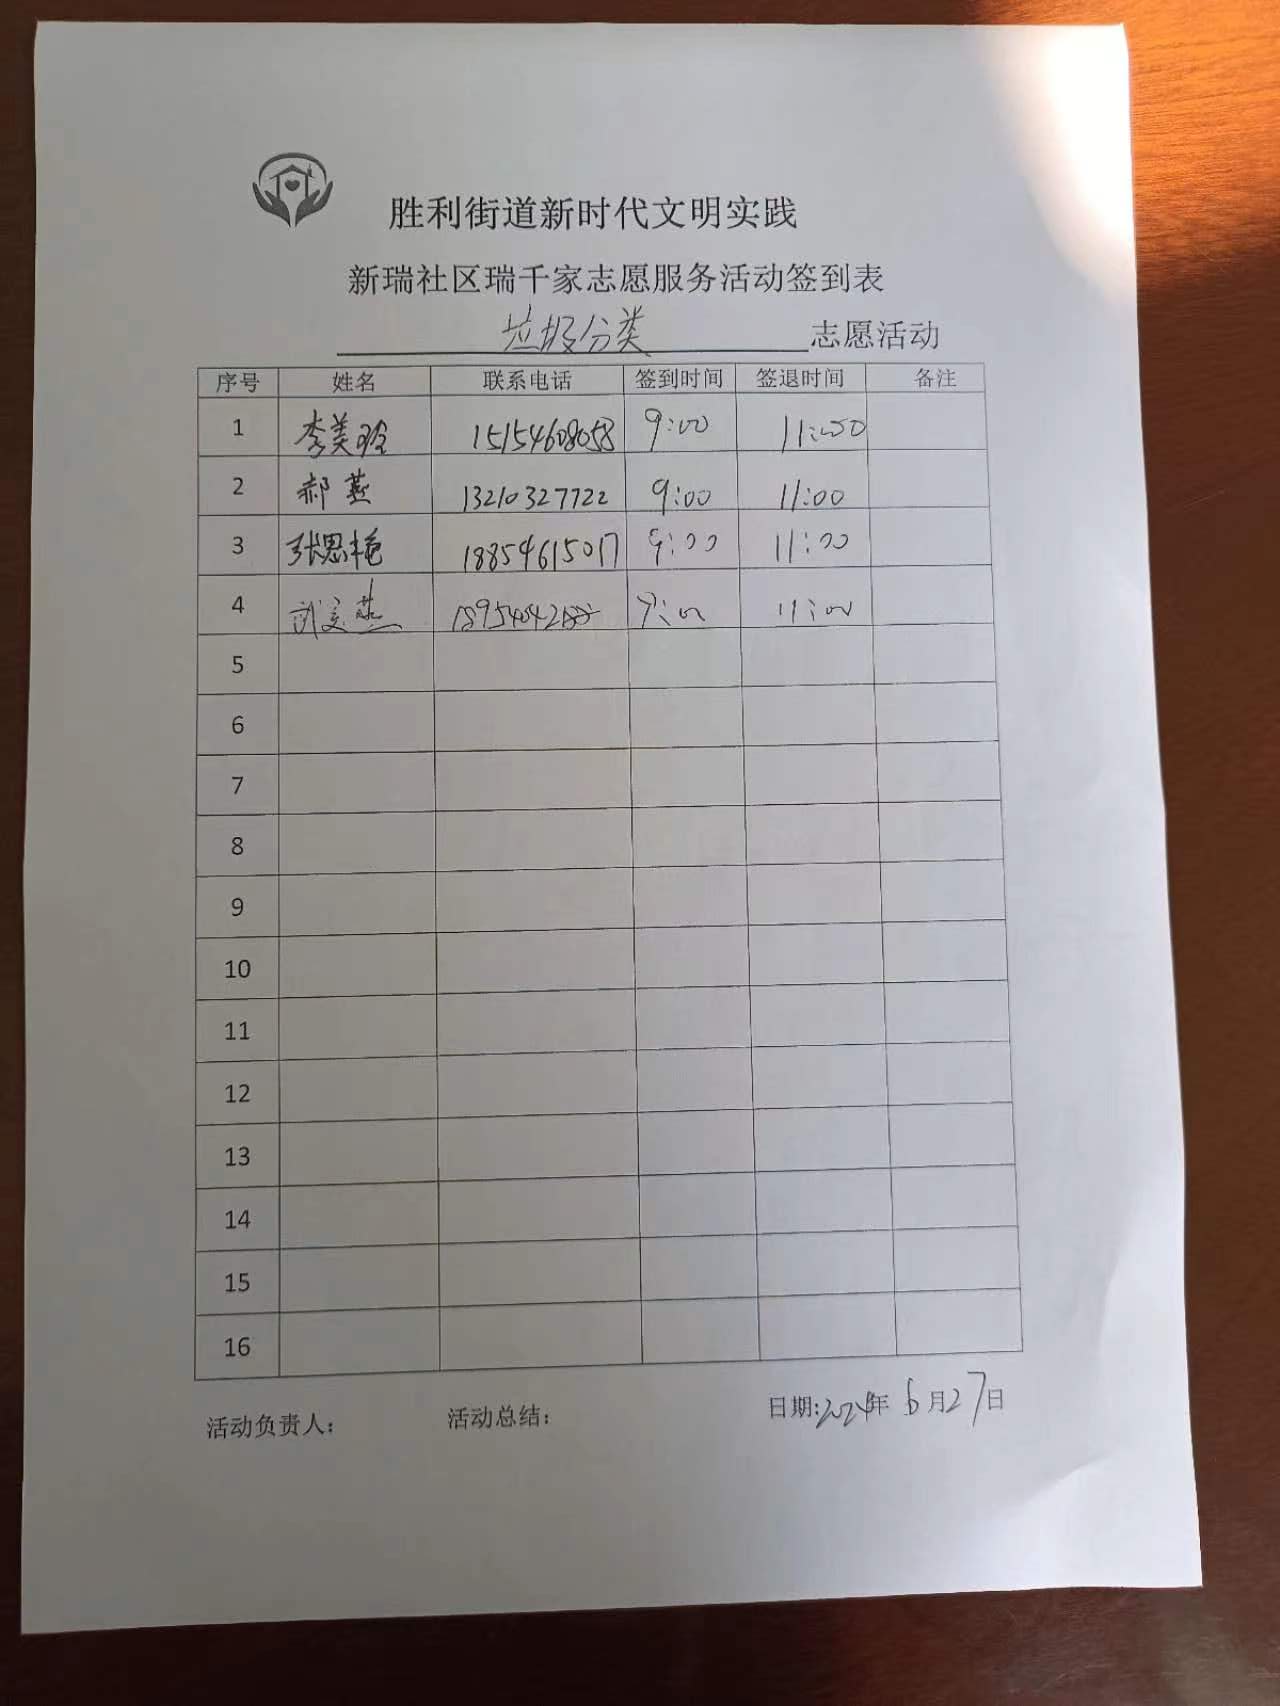 胜利街道新时代文明实践
新瑞社区瑞千家志愿服务活动签到表
垃圾分类 志愿活动
序号 姓名 联系电话 签到时间 签退时间 备注
1 李美玲 15154608058 9:00 11:00
2 郝燕 13210327722 9:00 11:00
3 张思艳 18854615017 9:00 11:00
4 武文燕 9:00 11:00
5
6
7
8
9
10
11
12
13
14
15
16
活动负责人: 活动总结: 日期:2024年6月27日